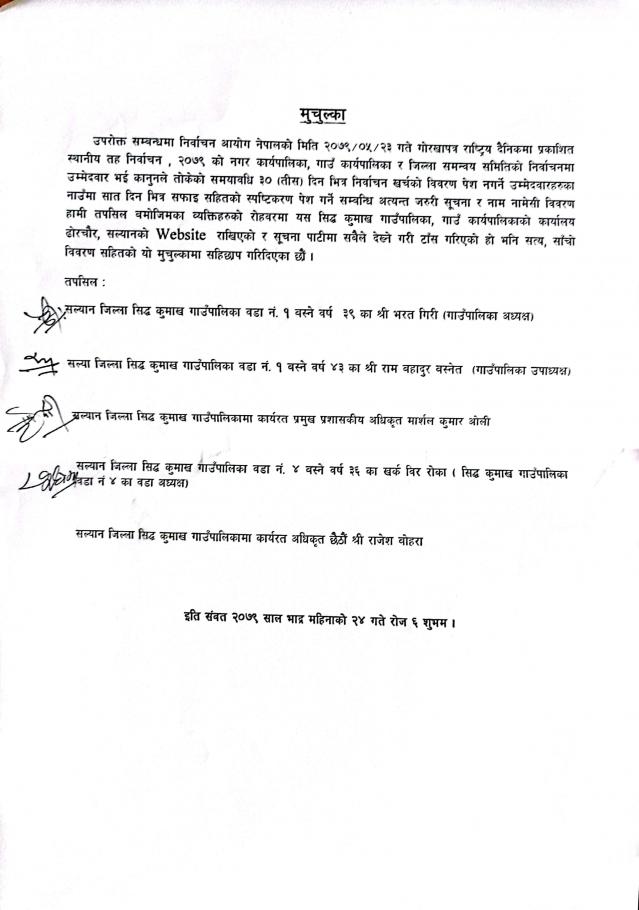 मुचुल्का
उपरोक्त सम्बन्धमा निर्वाचन आयोग नेपालको मिति २०७९/०५/२३ गते गोरखापत्र राष्ट्रिय दैनिकमा प्रकाशित
स्थानीय तह निर्वाचन , २०७९ को नगर कार्यपालिका, गाउँ कार्यपालिका र जिल्ला समन्वय समितिको निर्वाचनमा
उम्मेदवार भई कानुनले तोकेको समयावधि ३० (तीस) दिन भित्र निर्वाचन खर्चको विवरण पेश नगर्ने उम्मेदवारहरुका
नाउँमा सात दिन भित्र सफाइ सहितको स्पष्टिकरण पेश गर्ने सम्बन्धि अत्यन्त जरुरी सूचना र नाम नामेसी विवरण
हामी तपसिल बमोजिमका व्यक्तिहरुको रोहवरमा यस सिद्ध कुमाख गाउँपालिका, गाउँ कार्यपालिकाको कार्यालय
ढोरचौर, सल्यानको Website राखिएको र सूचना पाटीमा सबैले देख्ने गरी टाँस गरिएको हो भनि सत्य, साँचो
विवरण सहितको यो मुचुल्कामा सहिछाप गरिदिएका छौं ।
तपसिल :
सल्यान जिल्ला सिद्ध कुमाख गाउँपालिका वडा नं. १ बस्ने वर्ष ३९ का श्री भरत गिरी (गाउँपालिका अध्यक्ष)
सल्या जिल्ला सिद्ध कुमाख गाउँपालिका वडा नं. १ बस्ने वर्ष ४३ का श्री राम बहादुर बस्नेत (गाउँपालिका उपाध्यक्ष)
सल्यान जिल्ला सिद्ध कुमाख गाउँपालिकामा कार्यरत प्रमुख प्रशासकीय अधिकृत मार्शल कुमार ओली
सल्यान जिल्ला सिद्ध कुमाख गाउँपालिका वडा नं. ४ बस्ने वर्ष ३६ का खर्क विर रोका ( सिद्ध कुमाख गाउँपालिका
वडा नं ४ का वडा अध्यक्ष)
सल्यान जिल्ला सिद्ध कुमाख गाउँपालिकामा कार्यरत अधिकृत छैठौं श्री राजेश वोहरा
इति संवत २०७९ साल भाद्र महिनाको २४ गते रोज ६ शुभम ।